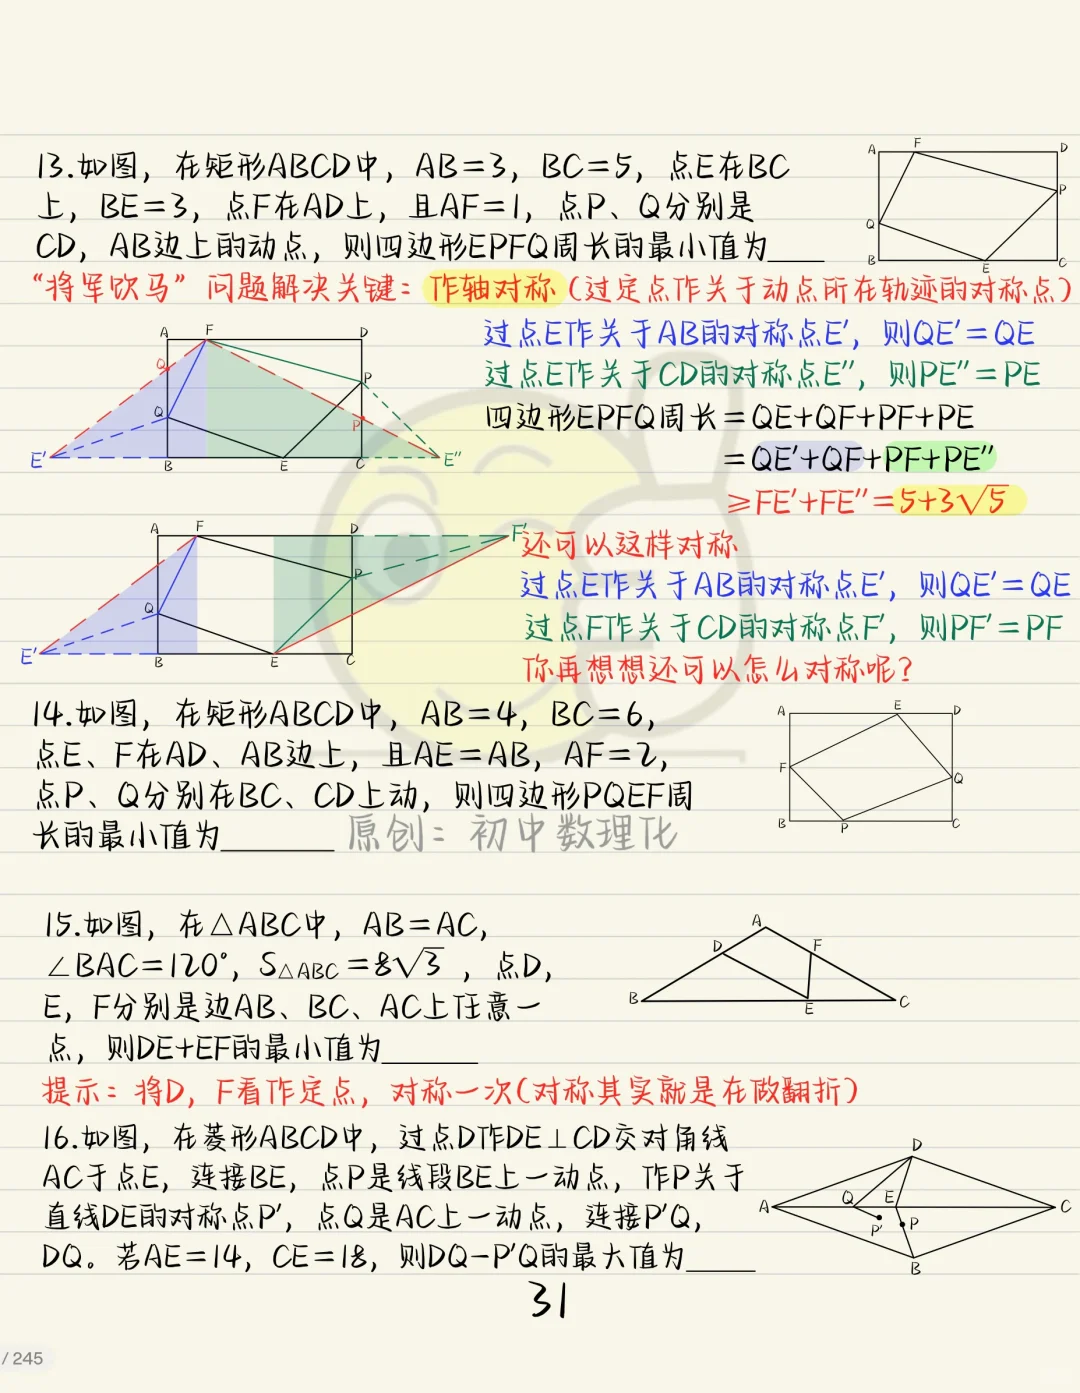 13.如图，在矩形ABCD中，AB=3，BC=5，点E在BC
上，BE=3，点F在AD上，且AF=1，点P、Q分别是
CD，AB边上的动点，则四边形EPFQ周长的最小值为____
A F D
P
Q
B E C
“将军饮马”问题解决关键：作轴对称（过定点作关于动点所在轨迹的对称点）
过点E作关于AB的对称点E′，则QE′=QE
过点E作关于CD的对称点E″，则PE″=PE
四边形EPFQ周长=QE+QF+PF+PE
=QE′+QF+PF+PE″
≥FE′+FE″=5+3√5
A F D
Q
P
Q
P
E′ B E C E″
A F D F′
P
Q
E′ B E C
还可以这样对称
过点E作关于AB的对称点E′，则QE′=QE
过点F作关于CD的对称点F′，则PF′=PF
你再想想还可以怎么对称呢？
14.如图，在矩形ABCD中，AB=4，BC=6，
点E、F在AD、AB边上，且AE=AB，AF=2，
点P、Q分别在BC、CD上动，则四边形PQEF周
长的最小值为________
原创：初中数理化
A E D
F
Q
B P C
15.如图，在△ABC中，AB=AC，
∠BAC=120°，S△ABC=8√3，点D，
E，F分别是边AB、BC、AC上任意一
点，则DE+EF的最小值为_______
A
D F
B E C
提示：将D，F看作定点，对称一次（对称其实就是在做翻折）
16.如图，在菱形ABCD中，过点D作DE⊥CD交对角线
AC于点E，连接BE，点P是线段BE上一动点，作P关于
直线DE的对称点P′，点Q是AC上一动点，连接P′Q，
DQ。若AE=14，CE=18，则DQ-P′Q的最大值为_____
D
A Q E C
P′ P
B
31
/ 245